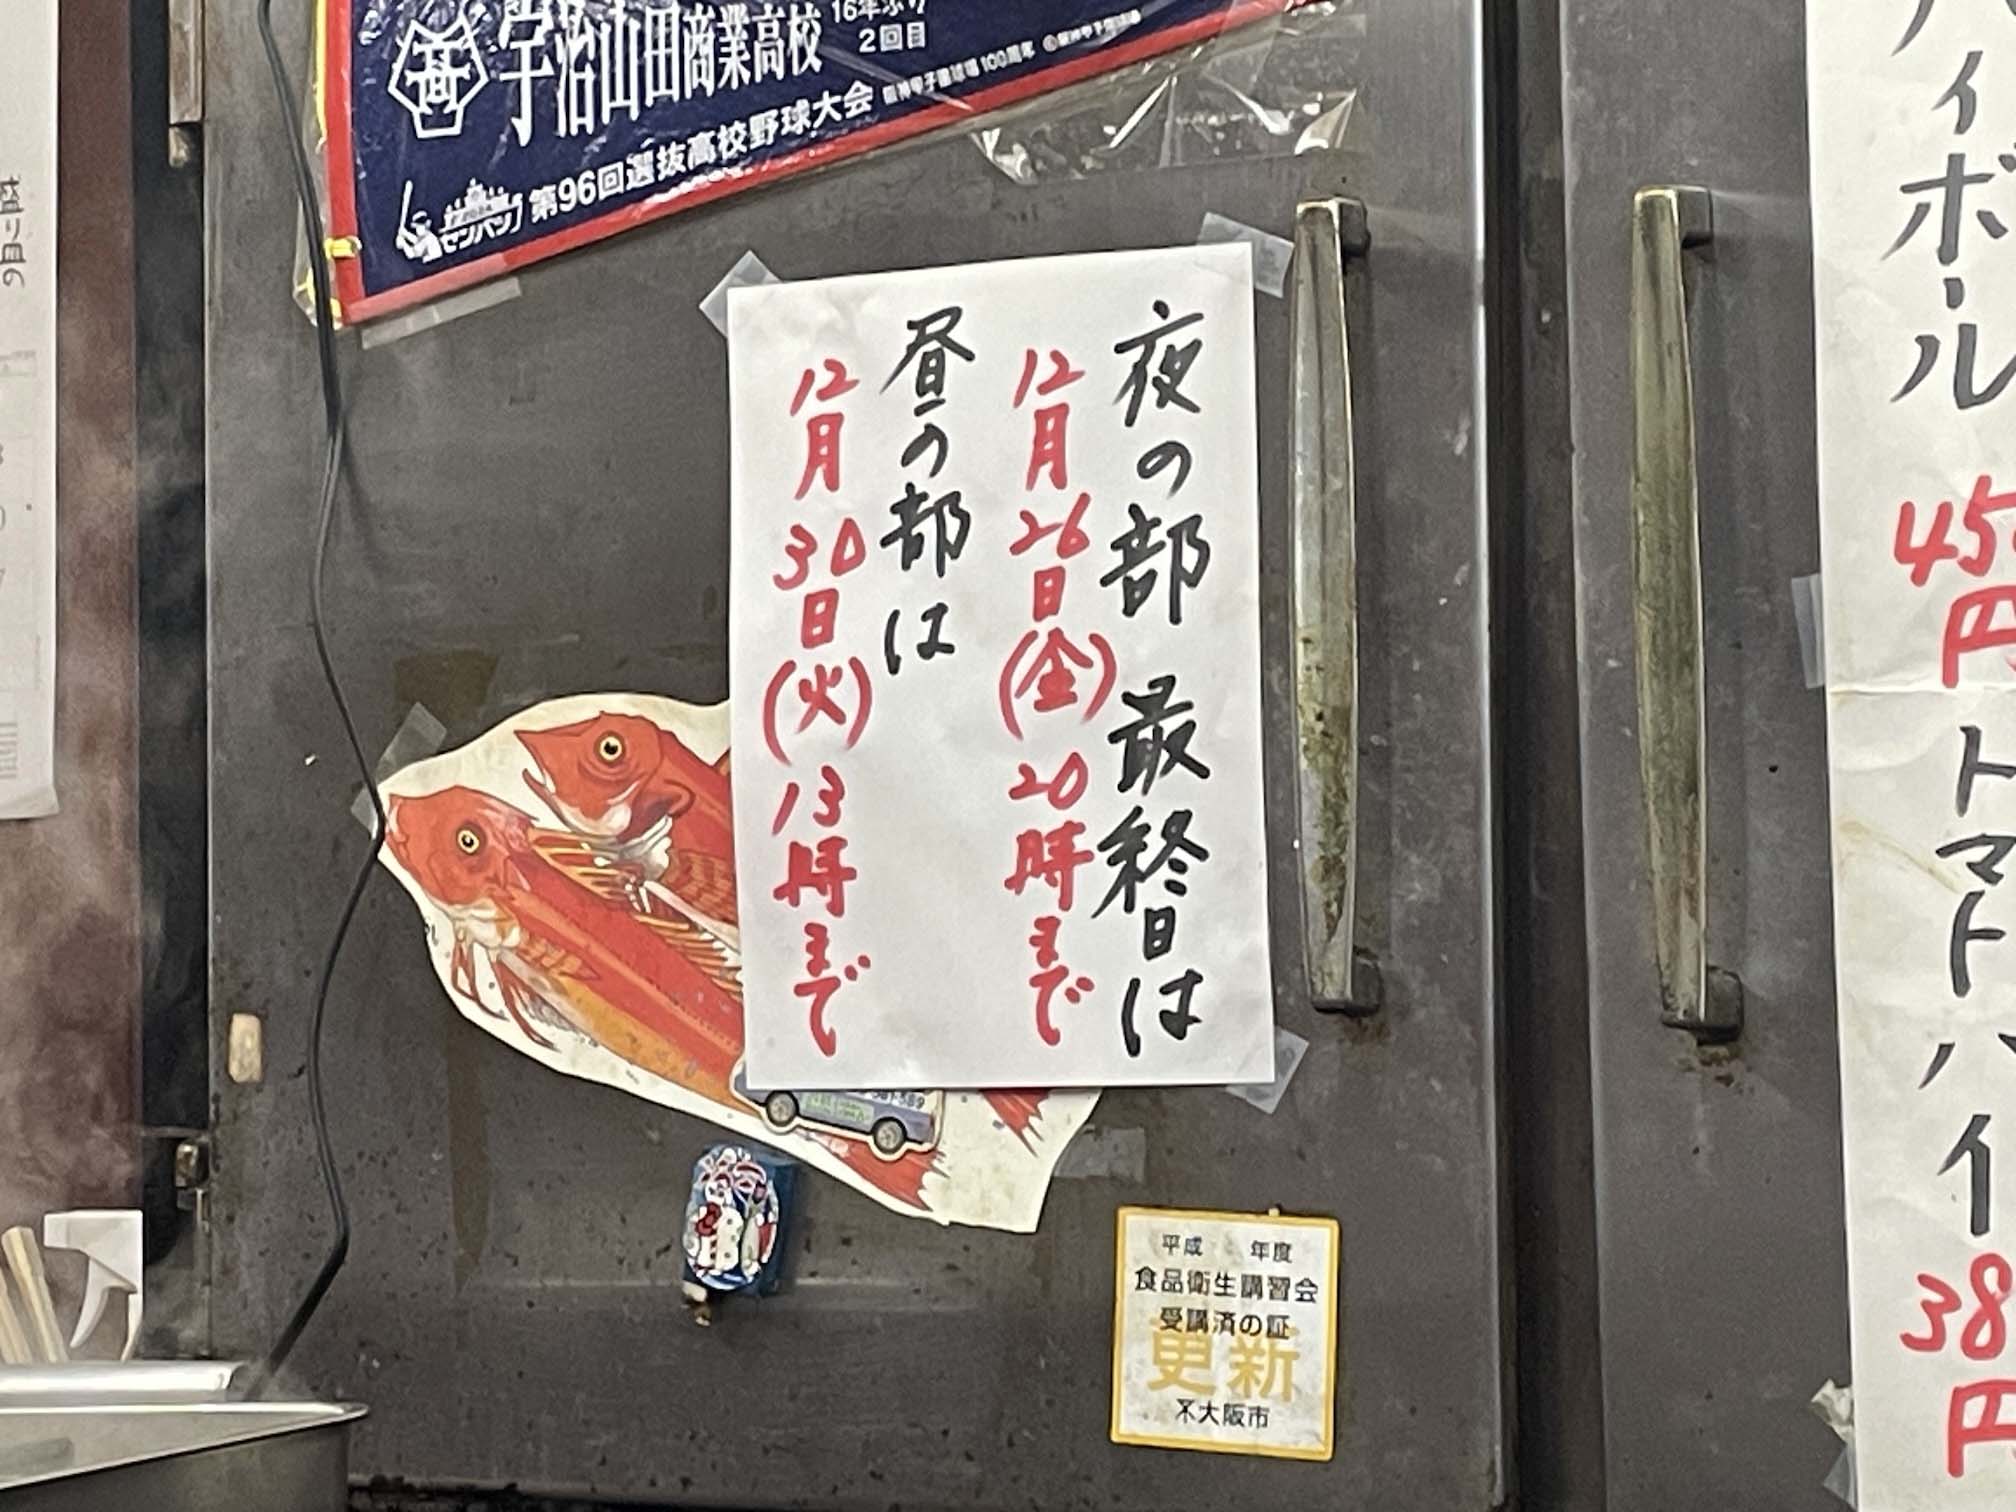 宇治山田商業高校
16年ぶり
2回目
第96回選抜高校野球大会
阪神甲子園球場100周年
センバツ
夜の部 最終日は
12月26日(金)20時まで
昼の部は
12月30日(火)13時まで
ハイボール
円
トマトハイ
円
盛り皿の
平成 年度
食品衛生講習会
受講済の証
更新
大阪市